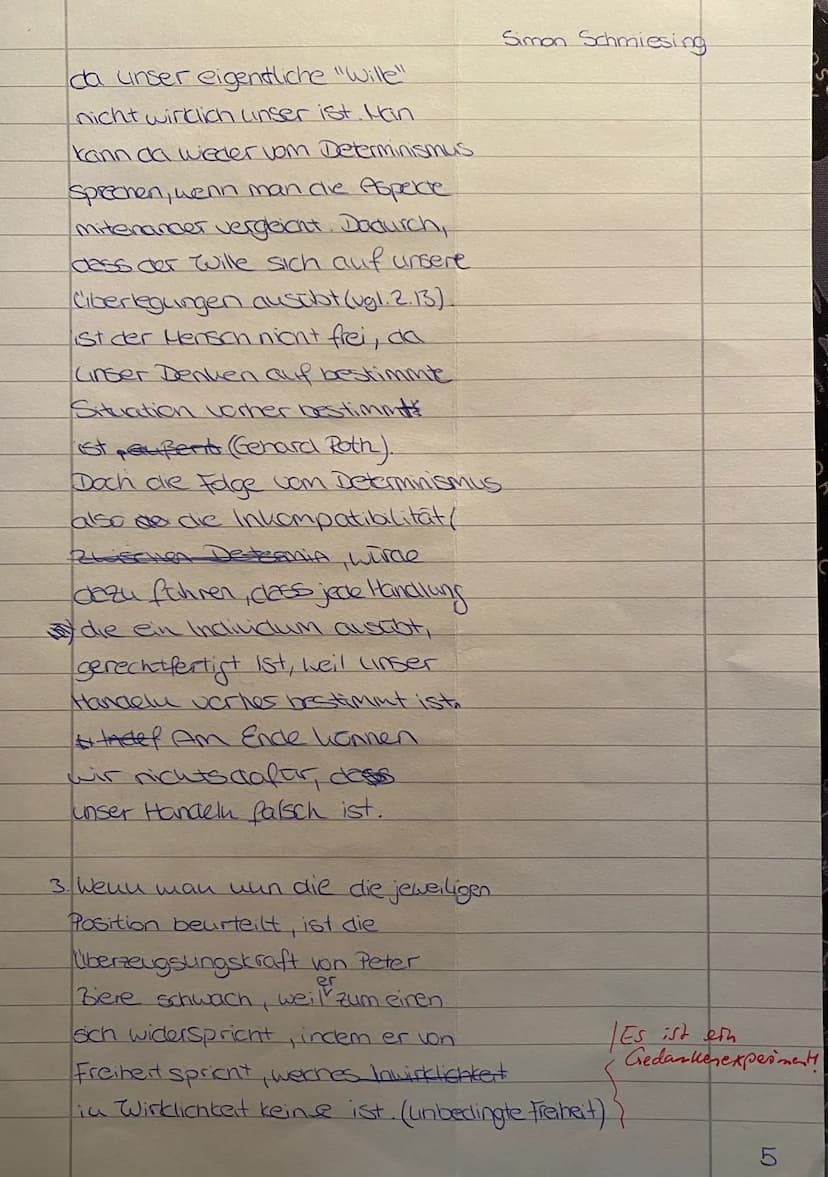 Simon Schmiesing
da unser eigentliche "Wille"
nicht wirklich unser ist. Man
kann da wieder vom Determinismus
sprechen, wenn man die Aspekte
miteinander vergleicht. Dadurch,
dass der Wille sich auf unsere
Überlegungen ausübt (vgl. Z. 13).
ist der Mensch nicht frei, da
unser Denken auf bestimmte
Situation vorher bestimmt
ist (Gehard Roth).
Doch die Folge vom Determinismus
also die Inkompatibilität
zwischen Determin, würde
dazu führen, dass jede Handlung
die ein Individum ausübt,
gerechtfertigt ist, weil unser
Handeln vorhes bestimmt ist.
Am Ende können
wir nichts dafür, dass
unser Handeln falsch ist.
3. Wenn man nun die die jeweiligen
Position beurteilt, ist die
Überzeugsungskraft von Peter
Biere schwach, weil er zum einen
sich widerspricht, indem er von
Freiheit spricht, welches Inwirklichkeit
in Wirklichkeit keine ist. (unbedingte Freiheit)
Es ist ein
Gedankenexperiment!
5